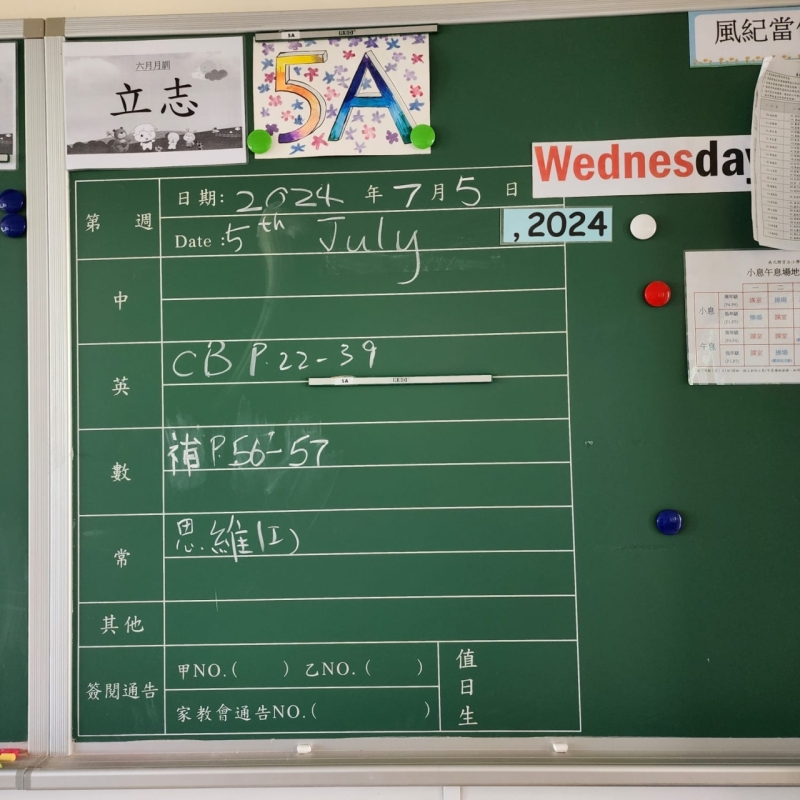 六月月劃
立志
5A
風紀當值
Wednesday
, 2024
第 週
日期: 2024 年 7 月 5 日
Date : 5th July
中
英
CB P.22-39
數
補 P.56-57
常
思維(I)
其他
簽閱通告
甲NO.( ) 乙NO.( )
家教會通告NO.( )
值日生
小息午息場地
小息
午息